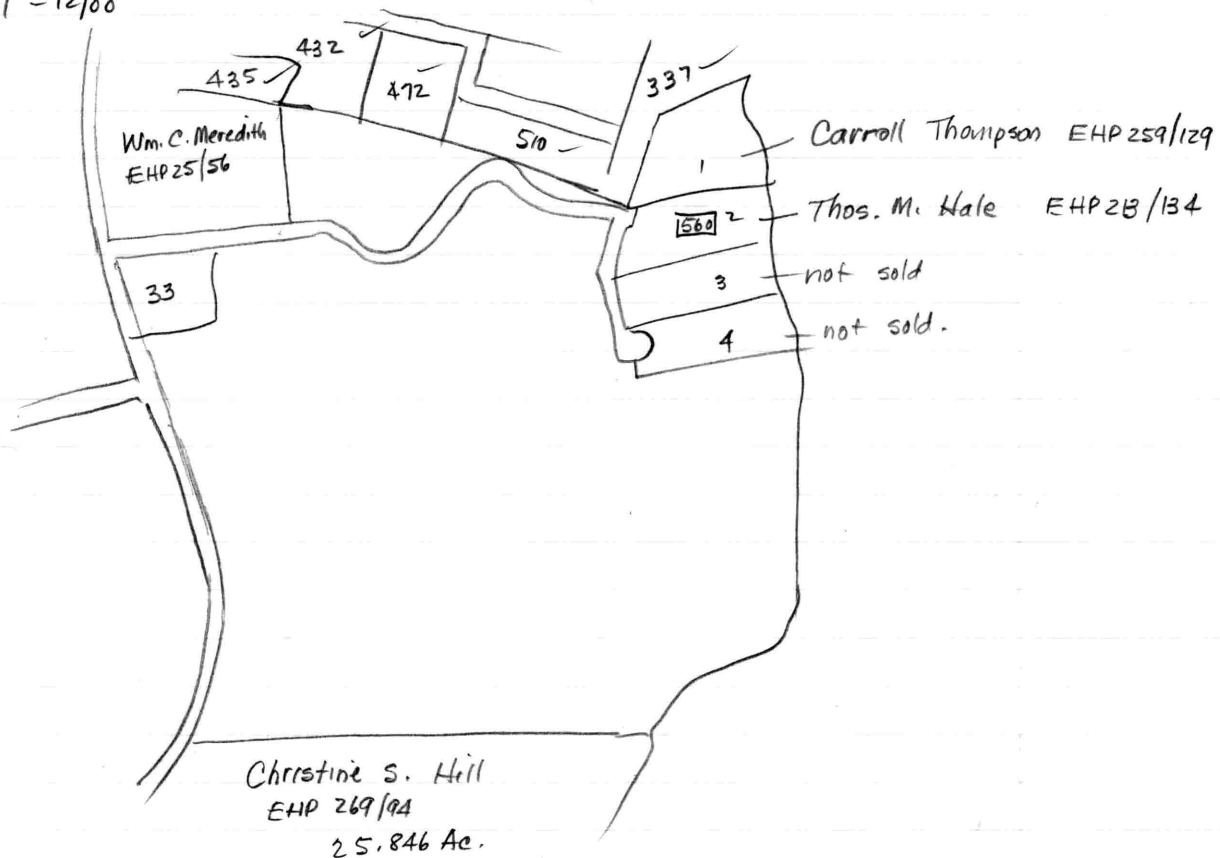 12/00
432
435
472
337
Wm. C. Meredith
EHP 25/56
510
Carroll Thompson EHP 259/129
1
560 2
Thos. M. Hale EHP 213/134
33
3
not sold
4
not sold.
Christine S. Hill
EHP 269/94
25.846 Ac.